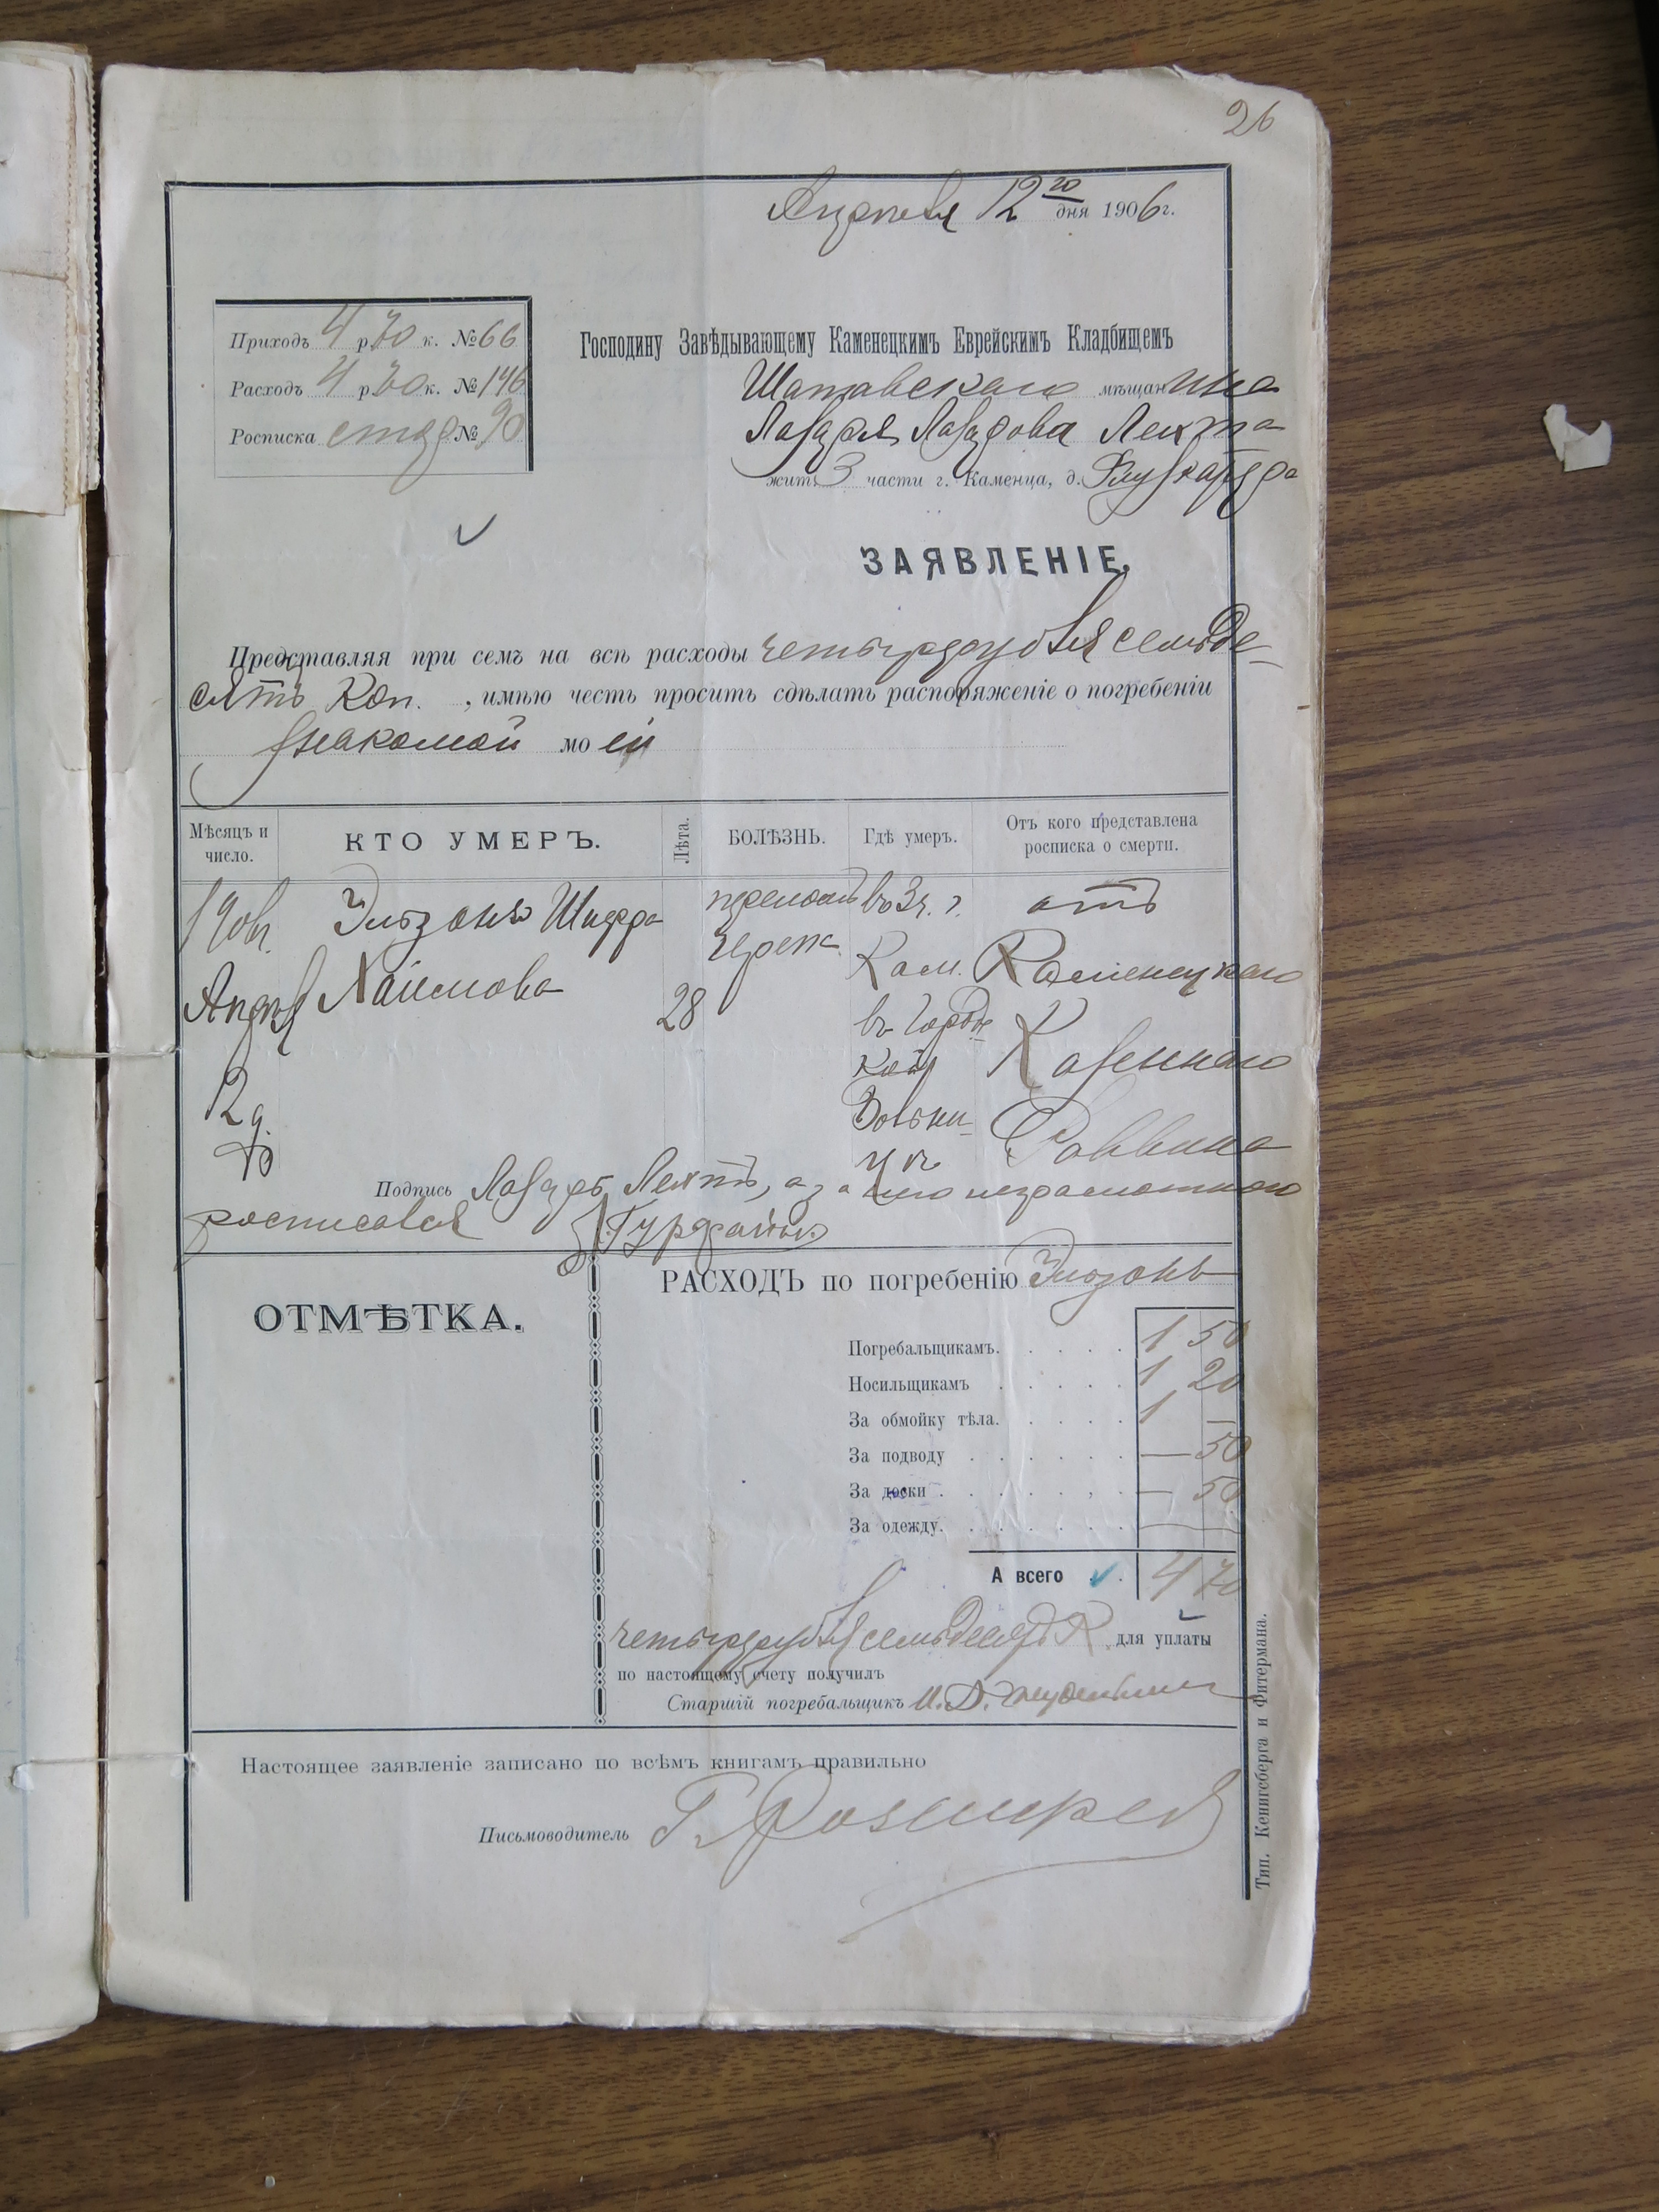 26
Апреля 12го дня 1906 г.
Приходъ 4 р 70 к. № 66
Расходъ 4 р 70 к. № 146
Росписка № 90
Господину Завѣдывающему Каменецкимъ Еврейскимъ Кладбищемъ
Шатавскаго мѣщанина
Лазаря Лазарова Лехта
жит. 3 части г. Каменца, д.
ЗАЯВЛЕНІЕ.
Представляя при семъ на всѣ расходы четыре рубля семьде-
сятъ Коп. , имѣю честь просить сдѣлать распоряженіе о погребеніи
знакомой моей
Мѣсяцъ и число.
КТО УМЕРЪ.
Лѣта.
БОЛѢЗНЬ.
Гдѣ умеръ.
Отъ кого представлена росписка о смерти.
190 г. Шифра переломъ въ 3 ч. г. отъ
Хаимова череп. Кам. Каменецкаго
Апрѣл 28 въ Город
12 д. ской Казеннаго
Больни-
цѣ Раввина
Подпись Лазарь Лехтъ, а за него неграмотнаго
росписался Гурфайнъ
ОТМѢТКА.
РАСХОДЪ по погребенію
Погребальщикамъ. 1 50
Носильщикамъ 1 20
За обмойку тѣла. 1 —
За подводу — 50
За доски — 50
За одежду.
А всего 4 70
четыре рубля семьдесятъ К. для уплаты
по настоящему счету получилъ
Старшій погребальщикъ И. Д.
Настоящее заявленіе записано по всѣмъ книгамъ правильно
Письмоводитель
Тип. Кенигсберга и Фитермана.